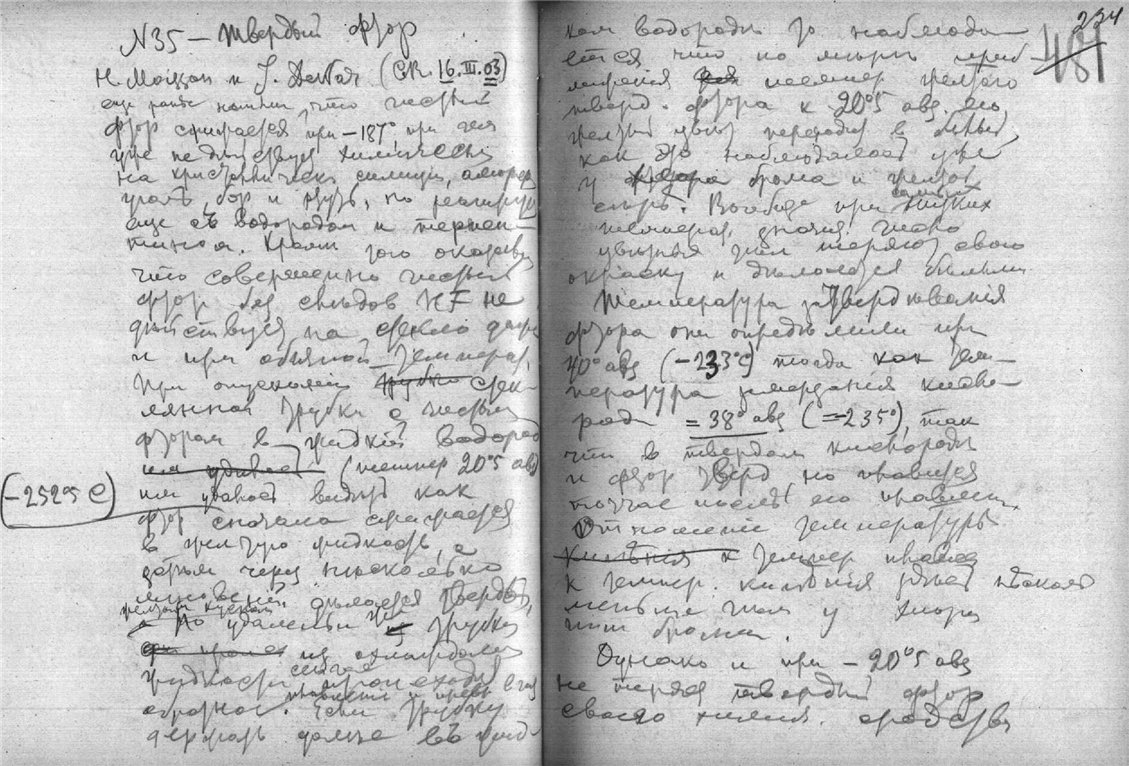 N35 – Твердый фтор
Н. Моассан и J. Дьюар (CR. 16.III.03)
еще ранее нашли, что чистый
фтор сжижается при –187° при чем
уже не действует химически
на кристаллическ силиций, аморфн
углъ, бор и ртуть, но реагируя
еще съ водородом и терпен-
тином. Кроме того оказыв
что совершенно чистый
фтор без следов HF не
действуя на стекло даже
и при обычной температ.
При опускании трубки стек-
лянной трубки с чистым
фтором в жидкий водород
им удавает (темпер 20°5 абс)
–252°5 C
им удавает видеть как
фтор сначала сжижается
в желтую жидкость, а
затем через несколько
мгновений делается твердъ,
желтым куском
По удалении же трубки
из
жидкости сейчас происходит
плавление и превр в газ
обратное. Если трубку
держать далее въ жид-
234
481
ком водороде то наблюда-
ется что по мере приб-
лижения темпер желтого
тверд. фтора к 20°5 абс его
желтый цвет переходя в белый,
как это наблюдалось уже
у фтора брома и желтой
серы. Вообще при самых низких
температ. многия
цветныя теряют свою
окраску и делаются белыми
Температура затвердевания
фтора они определили при
40° абс (–233°C) тогда как тем-
пература замерзания кисло
рода = 38° абс (=235°), так
что в твердом кислороде
и фтор тверд, но плавится
тотчас после его плавлен.
Отношение температуры
кипения к темпер плавлен
к темпер. кипения фтора несколько
меньше чем у хлора
или брома.
Однако и при –20°5 абс
не теряя твердый фтор
своего химич. сродства